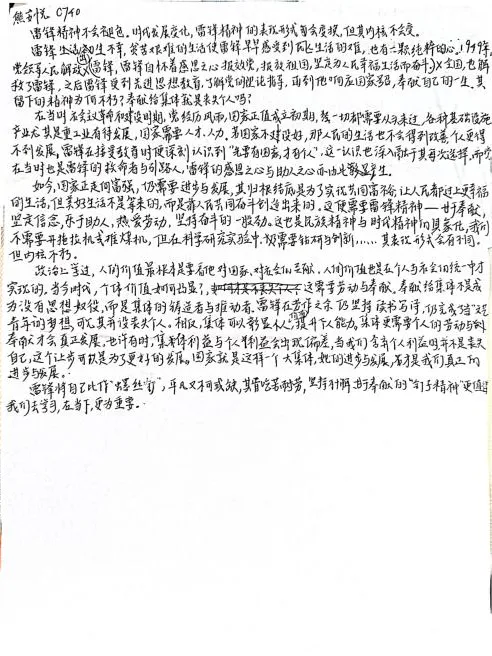 熊 C740
雷锋精神不会褪色。时代发展变化，雷锋精神的表现形式或会变换，但其内核不会变。
雷锋生活的不幸，贫苦艰难的生活使雷锋早早感受到生活的艰难，也有一颗纯粹的心。1949年，
党领导人民解放，雷锋，雷锋自怀着感恩之心报效党，报效祖国，坚定为人民幸福生活而奋斗。全国，也解
救了雷锋，之后雷锋受到先进思想教育，了解党的理论指导，而到他响应国家号召，奉献自己的一生。其
留下的精神为何不朽？奉献给集体就是丧失个人吗？
在当时社会革命和建设时期，党经历风雨，国家正值成立初期，整个一切都需要从头来过，各种基础设施
产业尤其是重工业有待发展，国家需要人才、人力。若国家不建设好，那人民的生活也不会得到改善，个人更得
不到发展，雷锋在接受教育时便深刻认识到“先要有国家，才有个人”。这一认识也深入于其每次选择，而党
在当时也是雷锋的救命者与引路人，雷锋的感恩之心与助人之心而由此产生。
如今，国家正走向富强，仍需要进步与发展，其中根终归是为了实现共同富裕，让人民都过上更幸福
的生活，但美好生活不是等来的，而是靠人民共同奋斗创造出来的。这便需要雷锋精神——甘于奉献，
坚定信念，乐于助人，热爱劳动，坚持奋斗的一股劲。这也是民族精神与时代精神的具象化，我们
不需要开拖拉机或推煤机，但在科学研究实验中，须需要钻研与创新……其表现形式会有不同，
但内核不朽。
政治上学过，人们价值最根本是要看他对国家、对社会的贡献，人们价值也是在个人与社会的统一中才
实现的。当今时代，个体价值如何凸显？，这需要劳动与奉献。奉献给集体不是成
为没有思想奴役，而是集体的铸造者与推动者，雷锋在劳作之余仍坚持读书写诗，仍完成当“文艺
青年”的梦想，可见其并没丧失个人。相反，集体可以彰显个人价值，提升个人能力，集体更需要个人的劳动与创
奉献才会真正发展，也许有时，集体得利益与个人利益会出现偏差，当我们舍弃个人利益时并不是丧失
自己，这个让步可以是为了更好的发展。国家就是这样一个大集体，她的进步与发展，若才是我们真正的
进步与发展。
雷锋将自己比作“螺丝钉”，平凡又不可或缺，其肯吃苦耐劳，坚持打磨，甘于奉献的“钉子精神”更值得
我们去学习，在当下，更为重要。